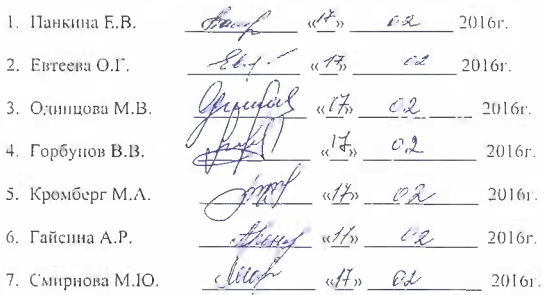 1. Панкина Е.В. «17» 02 2016г.
2. Евтеева О.Г. «17» 02 2016г.
3. Одинцова М.В. «17» 02 2016г.
4. Горбунов В.В. «17» 02 2016г.
5. Кромберг М.А. «17» 02 2016г.
6. Гайсина А.Р. «17» 02 2016г.
7. Смирнова М.Ю. «17» 02 2016г.